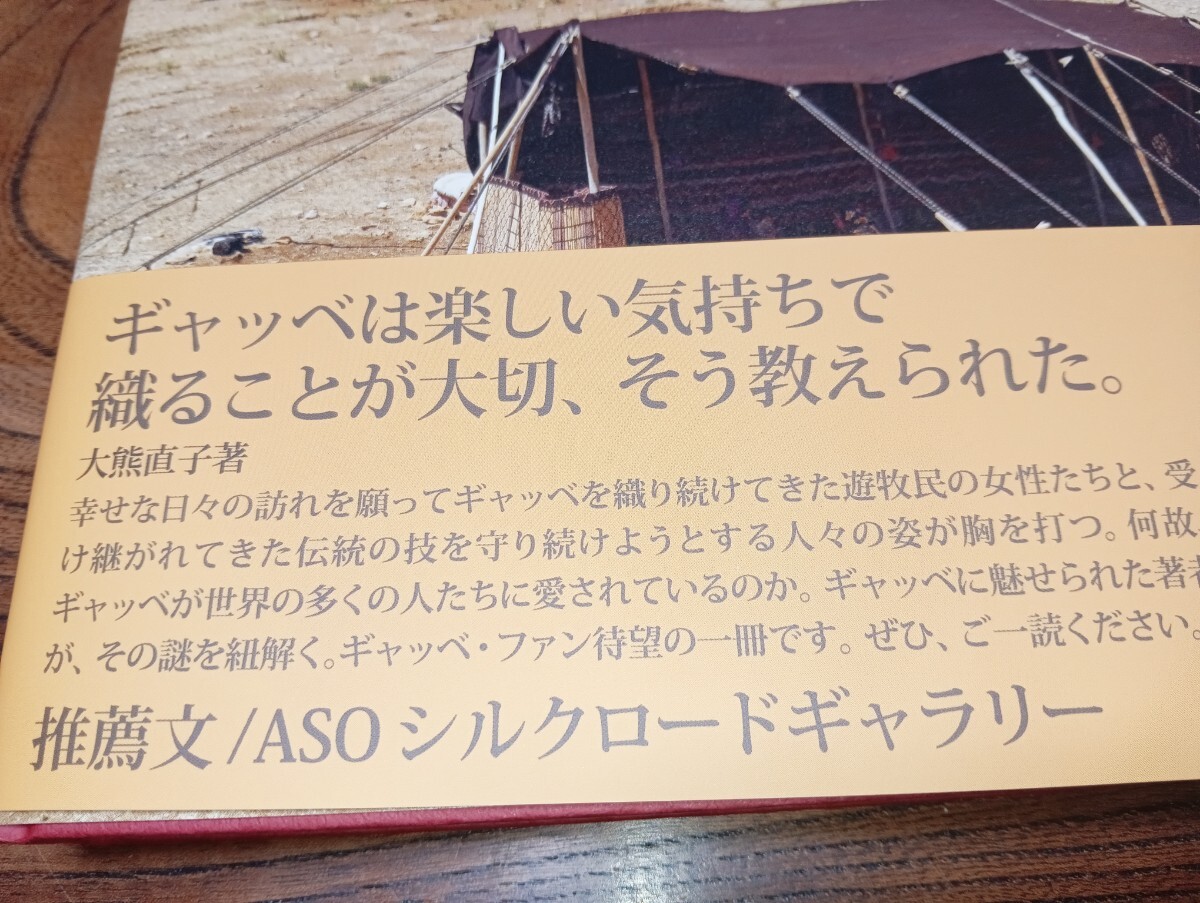 ギャッベは楽しい気持ちで
織ることが大切、そう教えられた。
大熊直子著
幸せな日々の訪れを願ってギャッベを織り続けてきた遊牧民の女性たちと、受
け継がれてきた伝統の技を守り続けようとする人々の姿が胸を打つ。何故、
ギャッベが世界の多くの人たちに愛されているのか。ギャッベに魅せられた著者
が、その謎を紐解く。ギャッベ・ファン待望の一冊です。ぜひ、ご一読ください。
推薦文/ASOシルクロードギャラリー